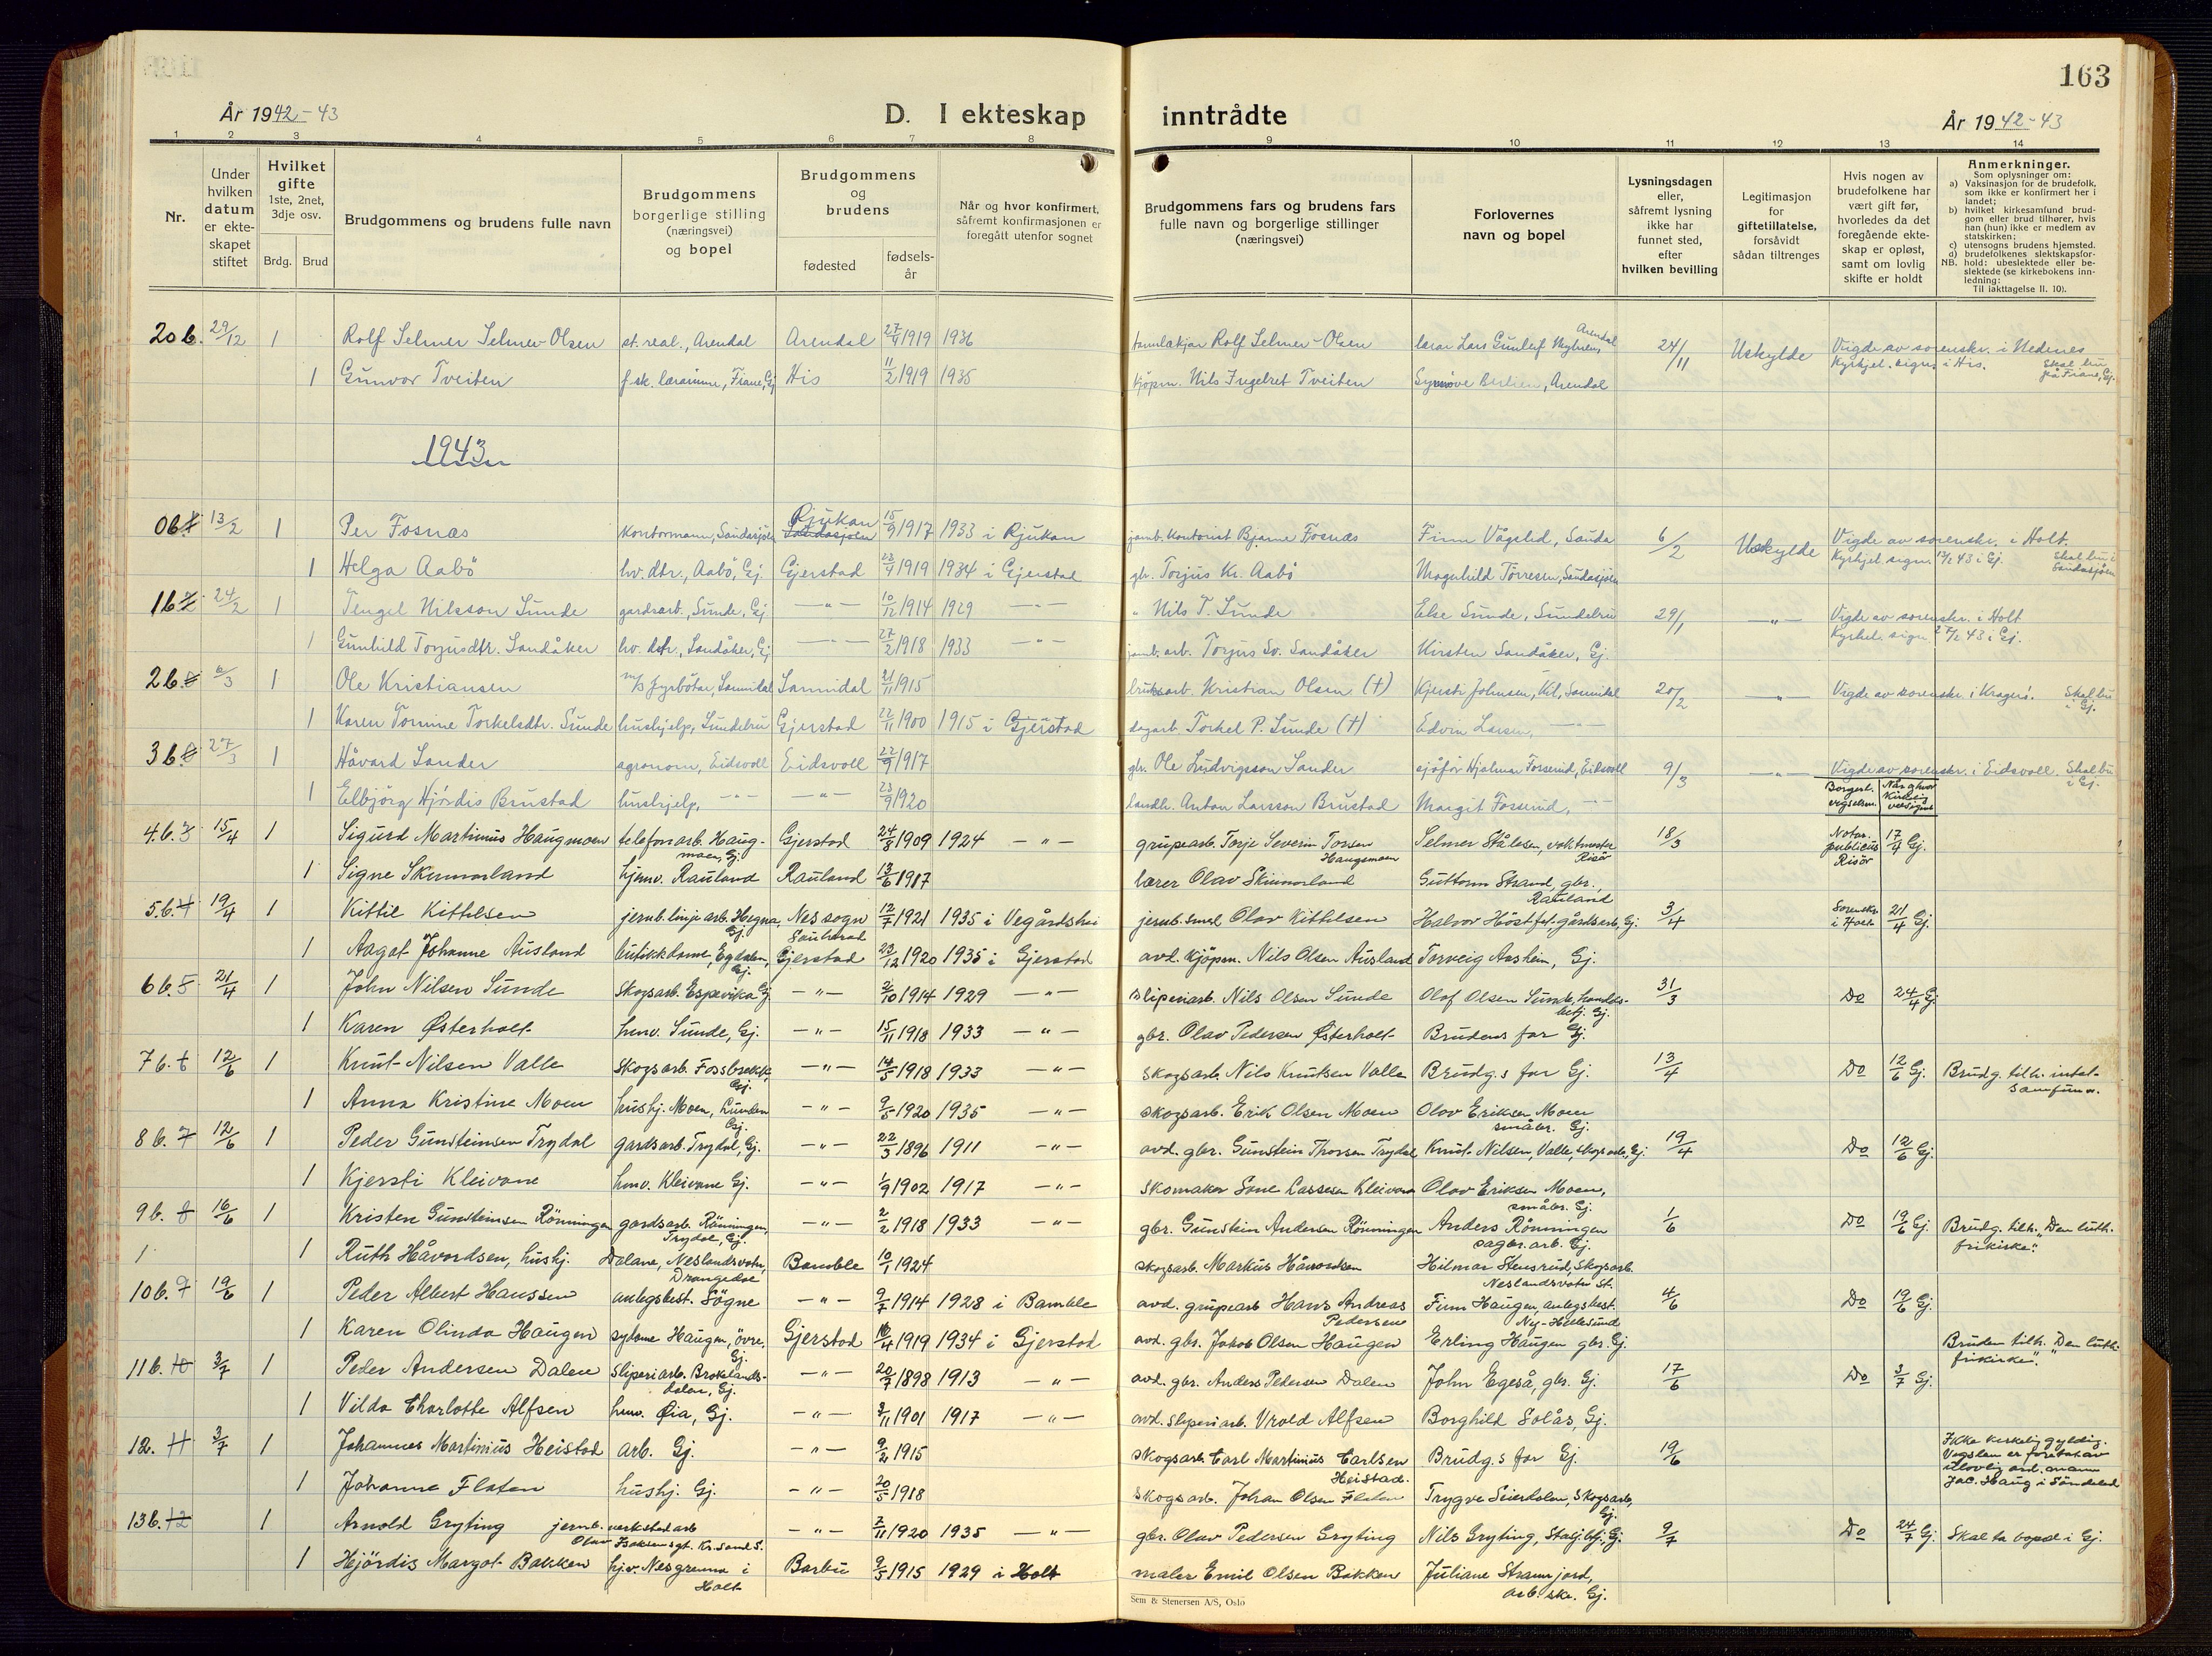 163
År 1942-43
D. I ekteskap inntrådte
År 1942-43
1 2 3 4 5 6 7 8 9 10 11 12 13 14
Nr.
Under hvilken datum er ekteskapet stiftet
Hvilket gifte 1ste, 2net, 3dje osv.
Brdg. Brud
Brudgommens og brudens fulle navn
Brudgommens borgerlige stilling (næringsvei) og bopel
Brudgommens og brudens
fødested
fødselsår
Når og hvor konfirmert, såfremt konfirmasjonen er foregått utenfor sognet
Brudgommens fars og brudens fars fulle navn og borgerlige stillinger (næringsvei)
Forlovernes navn og bopel
Lysningsdagen eller, såfremt lysning ikke har funnet sted, efter hvilken bevilling
Legitimasjon for giftetillatelse, forsåvidt sådan tiltrenges
Hvis nogen av brudefolkene har vært gift før, hvorledes da det foregående ekteskap er opløst, samt om lovlig skifte er holdt
Anmerkninger.
Som oplysninger om:
a) Vaksinasjon for de brudefolk, som ikke er konfirmert her i landet;
b) hvilket kirkesamfund brudgom eller brud tilhører, hvis han (hun) ikke er medlem av statskirken;
c) utensogns brudens hjemsted.
d) brudefolkenes slektskapsforhold: ubeslektede eller beslektede (se kirkebokens innledning:
NB.
Til iakttagelse II. 10).
20 b. 29/12 1 Rolf Selmer Selmer-Olsen st. real., Arendal Arendal 27/4 1919 1936 tannlækjar Rolf Selmer-Olsen lærar Lars Gunleif Myhren, Arendal 24/11 Uskylde Vigde av sorenskr. i Nedenes
1 Gunvor Tveiten f.sk. lærarinne, Fiane, Gj His 11/2 1919 1935 kjøpm. Nils Ingebret Tveiten Synnöve Berlien, Arendal Kyrkjel. sign. i His. Skal bu på Fiane, Gj.
1943
0 b 13/2 1 Per Fosnæs Kontormann, Saudasjøen Rjukan 15/9 1917 1933 i Rjukan jernb. kontorist Bjarne Fosnæs Finn Vågslid, Sauda 6/2 Uskylde Vigde av sorenskr. i Holt.
1 Helga Aabö hv. dtr., Aabö, Gj. Gjerstad 23/4 1919 1934 i Gjerstad gbr. Torjus Kr. Aabö Magnhild Törresen, Saudasjöen Kyrkjel. sign. 13/2 43 i Gj. Skal bu i Saudasjöen
1 b 24/2 1 Tengel Nilsson Sunde gardsarb., Sunde, Gj —"— 10/12 1914 1929 —"— " Nils T. Sunde Else Sunde, Sundebru 29/1 —"— Vigde av sorenskr. i Holt
1 Gunhild Torjusdtr. Sandåker hv. dtr., Sandåker, Gj —"— 27/2 1918 1933 —"— jernb. arb. Torjus Sv. Sandåker Kirsten Sandåker, Gj. Kyrkjel. sign. 27/2 43 i Gj.
2 b. 6/3 1 Ole Kristiansen m/s fyrbötar, Sannidal Sannidal 21/11 1915 bruksarb. Kristian Olsen (†) Kjersti Johnsen, Kil, Sannidal 20/2 —"— Vigde av sorenskr. i Kragerö. Skal bu i Gj.
1 Karen Tomine Torkelsdtr. Sunde hushjelp, Sundebru Gjerstad 22/11 1900 1915 i Gjerstad dagarb. Torkel P. Sunde (†) Edvin Larsen, —"—
3 b. 27/3 1 Håvard Sander agronom, Eidsvoll Eidsvoll 22/9 1917 gbr. Ole Ludvigsson Sander sjåfør Hjalmar Fosserud, Eidsvoll 9/3 —"— Vigde av sorenskr. i Eidsvoll. Skal bu i Gj.
1 Elbjörg Hjördis Brustad hushjelp, —"— —"— 23/9 1920 landh. Anton Larsson Brustad Margit Fosserud, —"—
Borgerl. vigselsm. Når og hvor kirkelig velsignet
4. b. 3 15/4 1 Sigurd Martinius Haugmoen telefonarb. Haugmoen, Gj. Gjerstad 24/8 1909 1924 —"— grupearb. Torje Severin Torsen Haugmoen Selmer Stålesen, vaktmester Risör 18/3 Notar. publicus Risör 17/4 Gj.
1 Signe Skinnarland hjemv. Rauland Rauland 13/6 1917 lærer Olav Skinnarland Guttorm Strand, gbr., Rauland
5. b. 4 19/4 1 Kittil Kittilsen jernb. linjearb. Hegna, Gj. Nes sogn Sauherad 12/7 1921 1935 i Vegårdshei jernb. smed Olav Kittelsen Halvor Höstfet, gårdsarb. Gj. 3/4 Sorenskr. i Holt 21/4 Gj.
1 Aagot Johanne Ausland butikkdame, Egdalen, Gj. Gjerstad 23/12 1920 1935 i Gjerstad avd. kjöpm. Nils Olsen Ausland Torveig Aasheim, Gj.
6 b. 5 21/4 1 John Nilsen Sunde Skogsarb. Espevika Gj. —"— 3/10 1914 1929 —"— sliperiarb. Nils Olsen Sunde Olaf Olsen Sunde, handelsbetj. Gj. 31/3 Do 24/4 Gj
1 Karen Østerholt hmv. Sunde, Gj. —"— 15/11 1918 1933 —"— gbr. Olav Pedersen Østerholt Brudens far Gj.
7 b. 6 12/6 1 Knut Nilsen Valle Skogsarb. Fossbrekke, Gj. —"— 14/5 1918 1933 —"— skogsarb. Nils Knutsen Valle Brudg.s far Gj. 13/4 Do 12/6 Gj. Brudg. tilh. intet samfunn.
1 Anna Kristine Moen hushj. Moen, Lunden Gj. —"— 9/5 1920 1935 —"— skogsarb. Erik Olsen Moen Olav Eriksen Moen småbr. Gj.
8 b. 7 12/6 1 Peder Gunsteinsen Trydal gardsarb. Trydal, Gj. —"— 22/3 1896 1911 —"— avd. gbr. Gunstein Thorsen Trydal Knut Nilsen, Valle, skogsarb, Gj. 19/4 Do 12/6 Gj.
1 Kjersti Kleivane hmv. Kleivane Gj. —"— 1/9 1902 1917 —"— skomaker Sone Lassesen Kleivane Olav Eriksen Moen, småbr. Gj.
9 b. 8 16/6 1 Kristen Gunsteinsen Rönningen gardsarb. Rönningen, Trydal, Gj. —"— 2/2 1918 1933 —"— gbr. Gunstein Andersen Rönningen Anders Rönningen sagbr. arb. Gj. 1/6 Do 19/6 Gj. Brudg. tilh. "Den luth. frikirke".
1 1 Ruth Håvardsen, hushj. Dalane, Neslandsvatn, Drangedal Bamble 10/1 1924 skogsarb. Markus Håvardsen Hilmar Stensrud, Skogsarb. Neslandsvatn St.
10 b. 9 19/6 1 Peder Albert Hanssen anlegsbest. Sögne —"— 9/7 1914 1928 i Bamble avd. grupearb Hans Andreas Pedersen Finn Haugen, anlegsbest. Ny-Hellesund 4/6 Do 19/6 Gj.
1 Karen Olinda Haugen sydame Haugen, övre. Gj. Gjerstad 16/4 1919 1934 i Gjerstad avd. gbr. Jakob Olsen Haugen Erling Haugen gbr. Gj. Bruden tilh. "Den luth. frikirke".
11 b. 10 3/7 1 Peder Andersen Dalen Sliperiarb. Broklandsdalen, Gj. —"— 20/7 1898 1913 —"— avd. gbr. Anders Pedersen Dalen John Egeså, gbr. Gj. 17/6 Do 3/7 Gj.
1 Vilda Charlotte Alfsen hmv. Øia, Gj. —"— 3/11 1901 1917 —"— avd. sliperiarb. Vrold Alfsen Borghild Solås, Gj.
12. 11 3/7 1 Johannes Martinius Heistad arb. Gj. —"— 9/2 1915 skogsarb Carl Martinius Carlsen Heistad. Brudg.s far Gj. 19/6 Ikke kirkelig gyldig. Vigslen er foretatt av ulovlig ord. mann Jac. Haug i Söndeled
1 Johanna Flaten hushj. Gj. —"— 20/5 1918 skogsarb. Johan Olsen Flaten Trygve Seierdalen, Skogsarb, Gj.
13 b. 12 1 Arnold Gryting jernb. verkstedarb Olav Baksens gt. Kr.sand S. —"— 7/11 1920 1935 —"— gbr. Olav Pedersen Gryting Nils Gryting, Stasj.btj. Gj. 9/7 Do 24/7 Gj. Skal ta bopel i Gj.
1 Hjördis Margot Bakken hj.v. Nesgrenna i Holt Barbu 9/5 1915 1929 i Holt maler Emil Olsen Bakken Juliane Strannjord, arb. ske. Gj.
Sem & Stenersen A/S, Oslo